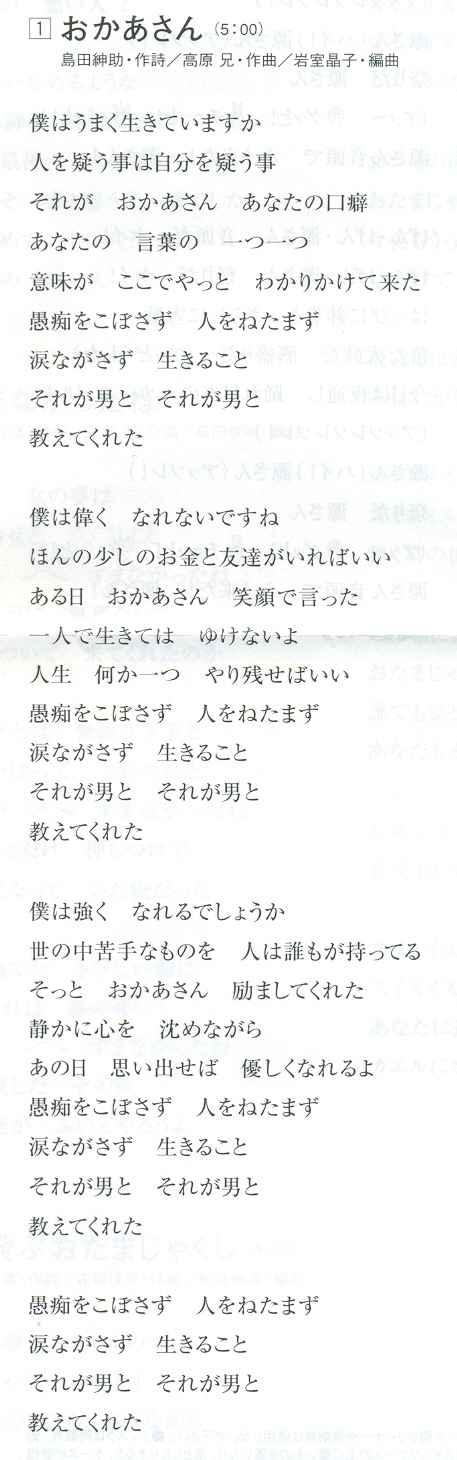 1 おかあさん (5:00)
島田紳助・作詩／高原 兄・作曲／岩室晶子・編曲
僕はうまく生きていますか
人を疑う事は自分を疑う事
それが　おかあさん　あなたの口癖
あなたの　言葉の　一つ一つ
意味が　ここでやっと　わかりかけて来た
愚痴をこぼさず　人をねたまず
涙ながさず　生きること
それが男と　それが男と
教えてくれた
僕は偉く　なれないですね
ほんの少しのお金と友達がいればいい
ある日　おかあさん　笑顔で言った
一人で生きては　ゆけないよ
人生　何か一つ　やり残せばいい
愚痴をこぼさず　人をねたまず
涙ながさず　生きること
それが男と　それが男と
教えてくれた
僕は強く　なれるでしょうか
世の中苦手なものを　人は誰もが持ってる
そっと　おかあさん　励ましてくれた
静かに心を　沈めながら
あの日　思い出せば　優しくなれるよ
愚痴をこぼさず　人をねたまず
涙ながさず　生きること
それが男と　それが男と
教えてくれた
愚痴をこぼさず　人をねたまず
涙ながさず　生きること
それが男と　それが男と
教えてくれた